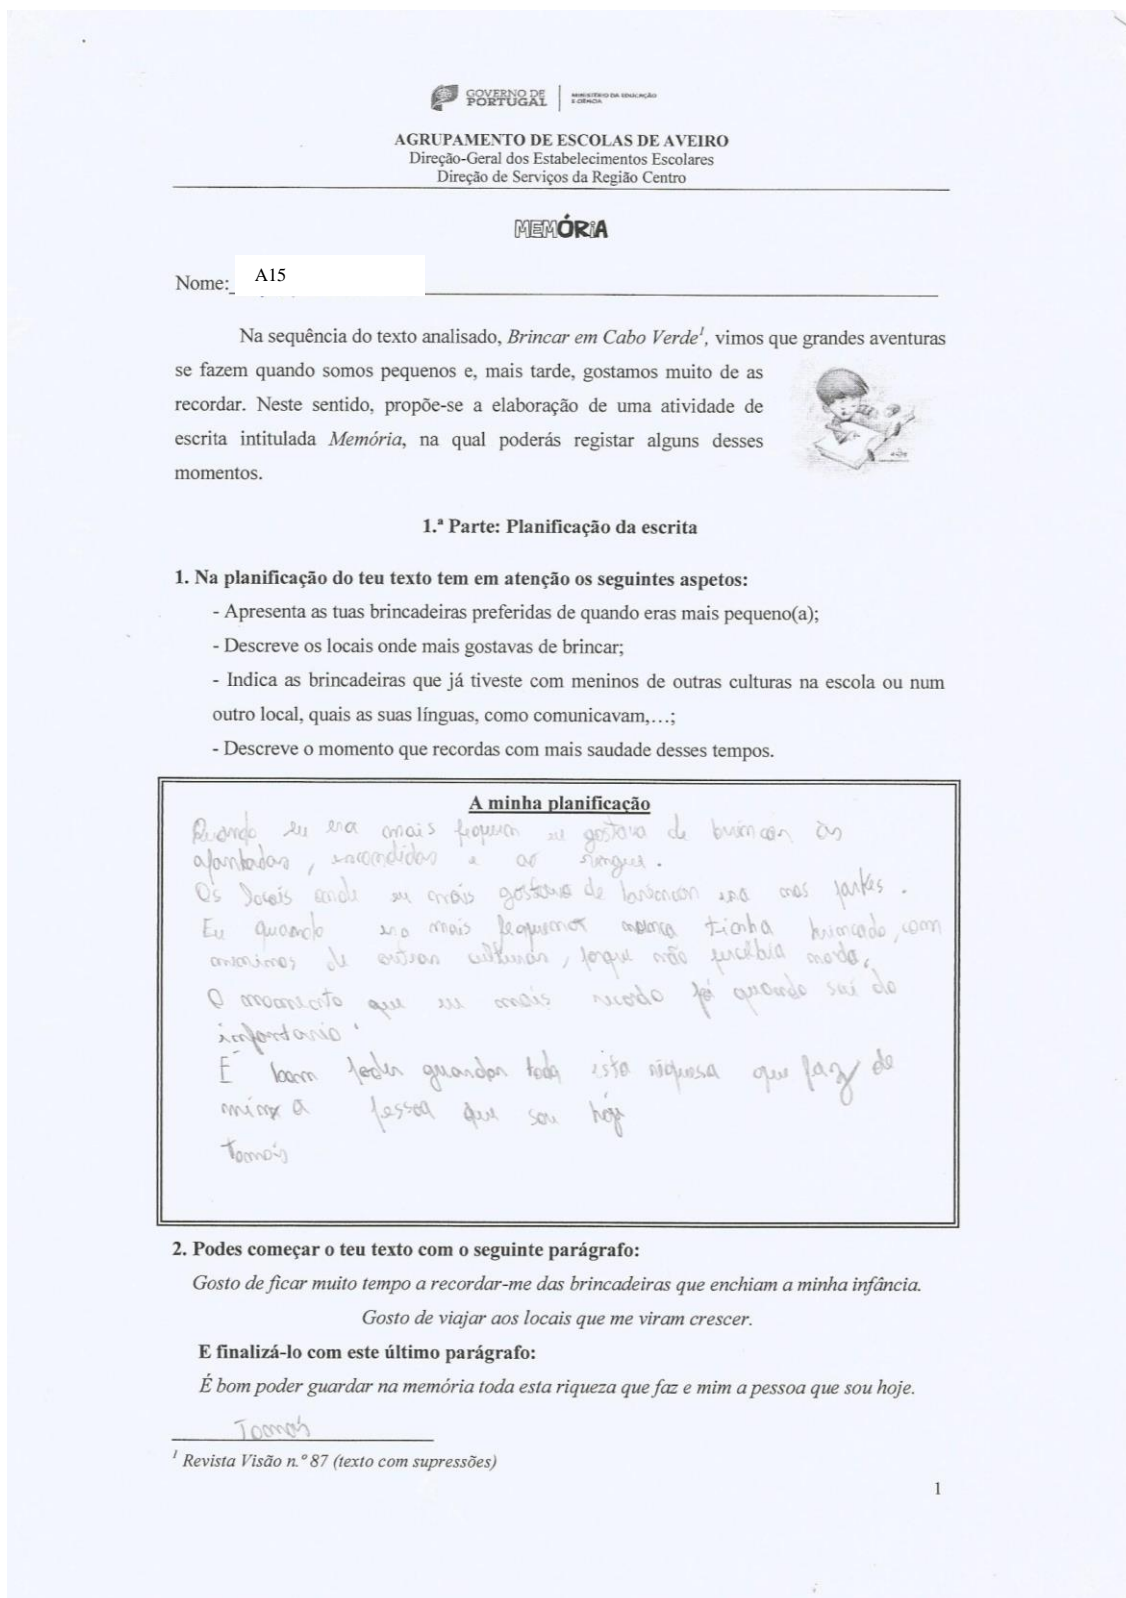 GOVERNO DE
PORTUGAL
MINISTÉRIO DA EDUCAÇÃO
E CIÊNCIA
AGRUPAMENTO DE ESCOLAS DE AVEIRO
Direção-Geral dos Estabelecimentos Escolares
Direção de Serviços da Região Centro
MEMÓRiA
Nome: A15
Na sequência do texto analisado, Brincar em Cabo Verde¹, vimos que grandes aventuras
se fazem quando somos pequenos e, mais tarde, gostamos muito de as
recordar. Neste sentido, propõe-se a elaboração de uma atividade de
escrita intitulada Memória, na qual poderás registar alguns desses
momentos.
1.ª Parte: Planificação da escrita
1. Na planificação do teu texto tem em atenção os seguintes aspetos:
- Apresenta as tuas brincadeiras preferidas de quando eras mais pequeno(a);
- Descreve os locais onde mais gostavas de brincar;
- Indica as brincadeiras que já tiveste com meninos de outras culturas na escola ou num
outro local, quais as suas línguas, como comunicavam,…;
- Descreve o momento que recordas com mais saudade desses tempos.
A minha planificação
Quando eu era mais eu gostava de brincar às
apanhadas, escondidas e ao ringue.
Os locais onde eu mais gostava de brincar era nos
Eu quando era mais nunca tinha brincado, com
meninos de outras culturas, porque não percebia nada.
O momento que eu mais recordo foi quando saí do
infantario
É bom poder guardar toda esta riquesa que faz de
a pessoa que sou
Tomás
2. Podes começar o teu texto com o seguinte parágrafo:
Gosto de ficar muito tempo a recordar-me das brincadeiras que enchiam a minha infância.
Gosto de viajar aos locais que me viram crescer.
E finalizá-lo com este último parágrafo:
É bom poder guardar na memória toda esta riqueza que faz e mim a pessoa que sou hoje.
Tomás
¹ Revista Visão n.º 87 (texto com supressões)
1